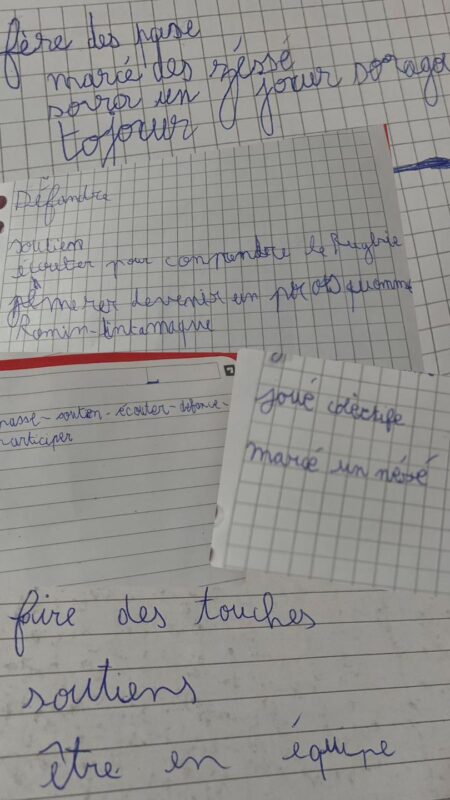 fère des passe
marcé des zéssé
sorra un jouur sorago
tojour
Défandre
soutien
écouter pour comprendre le Rugbie
j'émerer devenir un pro quomme
Romin-Entamaque
passe-soutien-écouter-defonce-
participer
joué colectife
marcé un nésé
faire des touches
soutiens
être en équipe